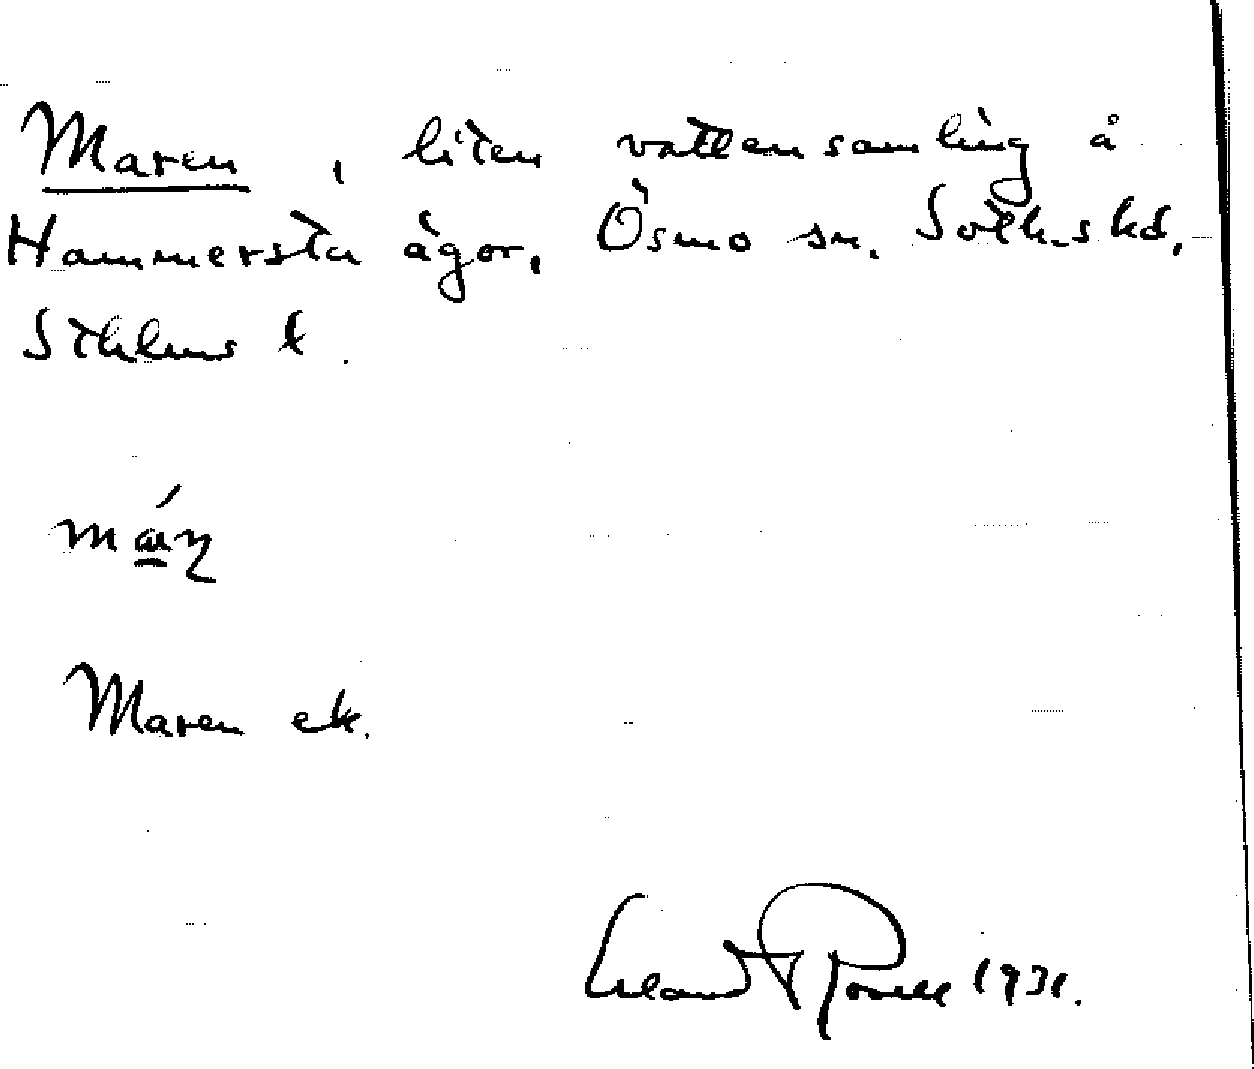 Maren, liten vattensamling å
Hammersta ägor, Ösmo sn. Sotholms hd,
Sthlms l.
Maren ek.
Erland Rosell 1931.